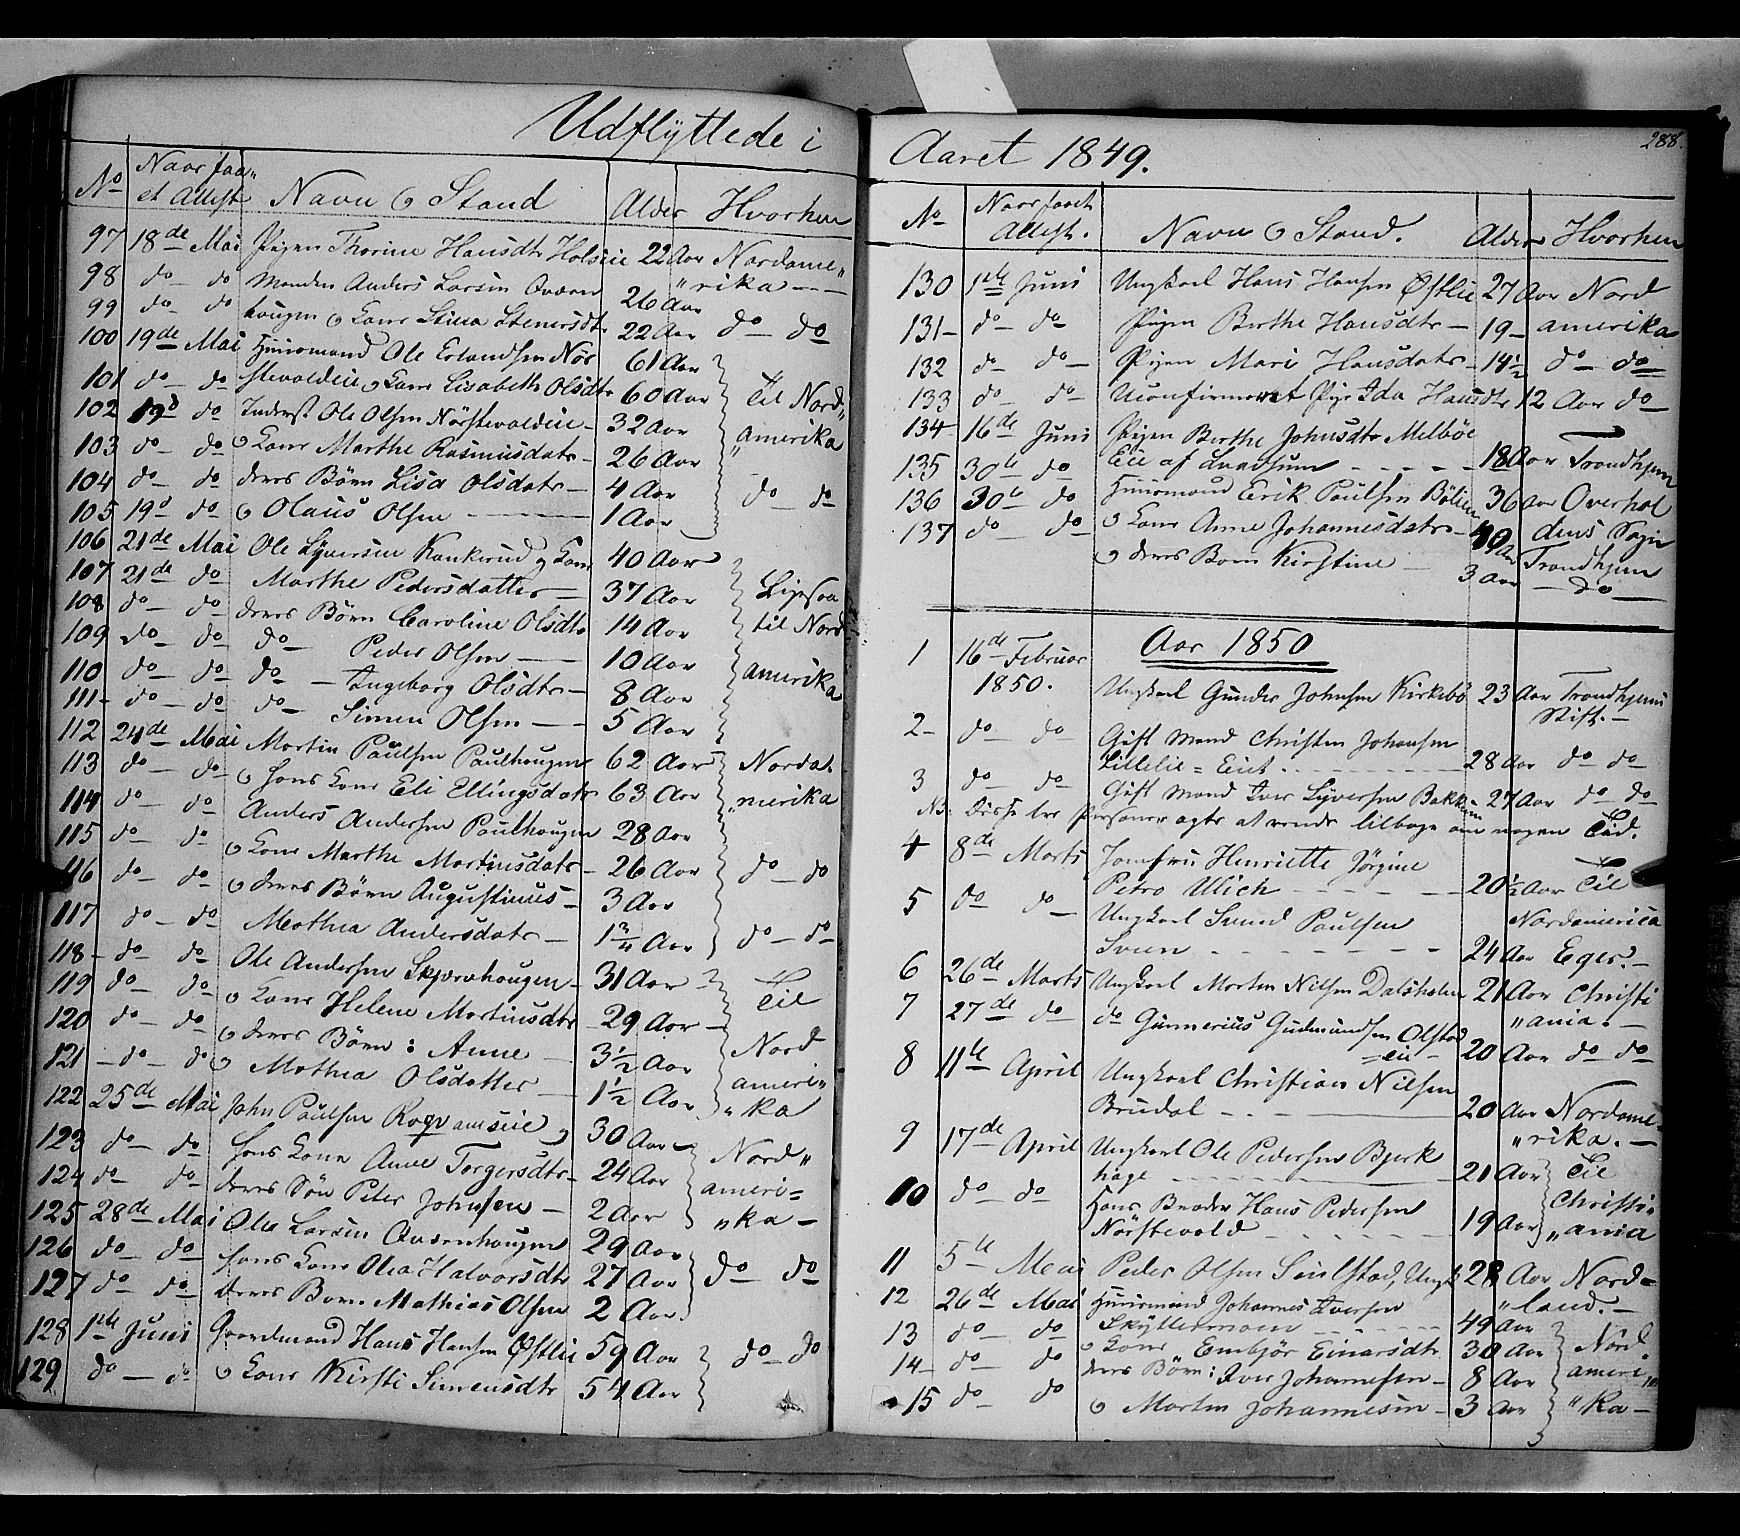 Udflyttede i
No Naar faaet Attest Navn & Stand Alder Hvorhen
97 18de Mai Pigen Thorine Hansdtr Holseie 22 Aar Nordame„
98 do do Manden Anders Larsen Qværn 26 Aar „rika
99 do do haugen & Kone Stina Stenersdtr 22 Aar do do
100 19de Mai Huusmand Ole Erlandsen Nør 61 Aar
101 do do stevoldeie & Kone Lisabeth Olsdtr 60 Aar Til Nord„
102 19d do Inderst Ole Olsen Nörstevoldeie 32 Aar „amerika
103 do do & Kone Marthe Rasmusdatr 26 Aar
104 do do deres Börn Lisa Olsdatr 4 Aar do do
105 19d do & Olaus Olsen 1 Aar
106 21de Mai Ole Syversen Kankerud & Kone 40 Aar
107 21de do Marthe Pedersdatter 37 Aar Ligesaa
108 do do deres Börn Caroline Olsdtr 14 Aar til Nord
109 do do do Peder Olsen 10 Aar
110 do do do Ingeborg Olsdtr 8 Aar amerika
111 do do do Simen Olsen 5 Aar
112 24de Mai Martin Paulsen Paulhaugen 62 Aar Norda
113 do do & hans Kone Eli Ellingsdatr 63 Aar „merika
114 do do Anders Andersen Paulhaugen 28 Aar
115 do do & Kone Marthe Martinusdatr 26 Aar do do
116 do do & deres Börn Augustinus 3 Aar
117 do do Mathea Andersdatr 1 3/4 Aar do do
118 do do Ole Andersen Skjervehaugen 31 Aar
119 do do & Kone Helene Martinusdtr 29 Aar Til
120 do do & deres Börn: Anne 3 1/2 Aar Nord
121 do do & Mathea Olsdatter 1 1/2 Aar ameri„
122 25de Mai John Paulsen Rognamseie & 30 Aar „ka
123 do do hans Kone Anne Torgersdtr 24 Aar Nord„
124 do do deres Sön Peter Johnsen 2 Aar ameri=
125 28de Mai Ole Larsen Qværnhaugen 29 Aar „ka
126 do do hans Kone Olea Halvorsdtr 27 Aar do do
127 do do deres Barn Mathias Olsen 2 Aar.
128 1ste Juni Gaardmand Hans Hansen Østlie 59 Aar do do
129 do do & Kone Kirsti Simensdtr 54 Aar
Aaret 1849.
288.
No Naar faaet Attest. Navn & Stand. Alder Hvorhen
130 1ste Juni Ungkarl Hans Hansen Østlie 27 Aar Nord
131 do do Pigen Berthe Hansdtr 19 amerika
132 do do Pigen Mari Hansdatr 14 1/2 do do
133 do do Uconfirmeret Pige Ida Hansdtr 12 Aar do
134 16de Juni Pigen Berthe Johnsdtr Melböe
135 30te do Eie af 18 Aar Trondhjem
136 30te do Huusmand Erik Paulsen Bölien 36 Aar Overhal
137 do do & Kone Anne Johannesdatr 40 Aar dens Sogn
& deres Barn Kirstine 3 Aar Trondhjem
do
Aar 1850
1 16de Februar
1850. Ungkarl Gunder Johnsen Kirkebö 23 Aar Trondhjems
Stift.
2 do do Gift Mand Christen Johansen
Lillelie=Eiet 28 Aar do do
3 do do Gift Mand Iver Syversen Bakken 27 Aar do do
NB. Disse tre Personer agte at vende tilbage om nogen Tid.
4 8de Marts Jomfru Henriette Jörgine
Petro Ulich 20 1/2 Aar Til
5 do do Ungkarl Svend Paulsen Nordamerica
Sveen 24 Aar Eger.
6 26de Marts Ungkarl Morten Nilsen Dalsholen 21 Aar Christi
7 27de do do Gunnerius Gudmundsen Olstad „ania.
=eie 20 Aar do do
8 11te April Ungkarl Christian Nilsen
Brudal 20 Aar Nordame„
„rika.
9 17de April Ungkarl Ole Pedersen Bjerk
hage 21 Aar Til
10 do do Hans Broder Hans Pedersen Christi„
Nörstevold 19 Aar „ania
11 5te Mai Peder Olsen Seielstad, Ungk 28 Aar Nord=
12 26de Mai Huusmand Johannes Iversen „land.
13 do do Skyttermoen 49 Aar
14 do do & Kone Embjör Einarsdtr 30 Aar Nord
deres Börn: Iver Johannesen 8 Aar ameri„
15 do do & Morten Johannesen 3 Aar „ka